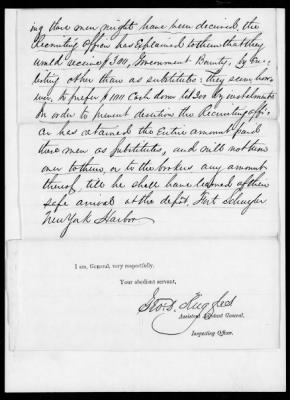 ing these men might have been deceived, the
Recruiting Officer has Explained to them that they
would receive $300, Government Bounty, by En-
listing other than as substitutes: They seem, how-
ever, to prefer $ Cash down to $300 by instalments
In order to prevent desertion the Recruiting offi-
cer has retained the Entire amount paid
these men as substitutes, and will not turn
over to them, or to the brokers any amount
thereof, till he shall have learned of their
safe arrival at the depôt, Fort Schuyler
New York Harbor
I am, General, very respectfully,
Your obedient servant,
Assistant Adjutant General,
Inspecting Officer.